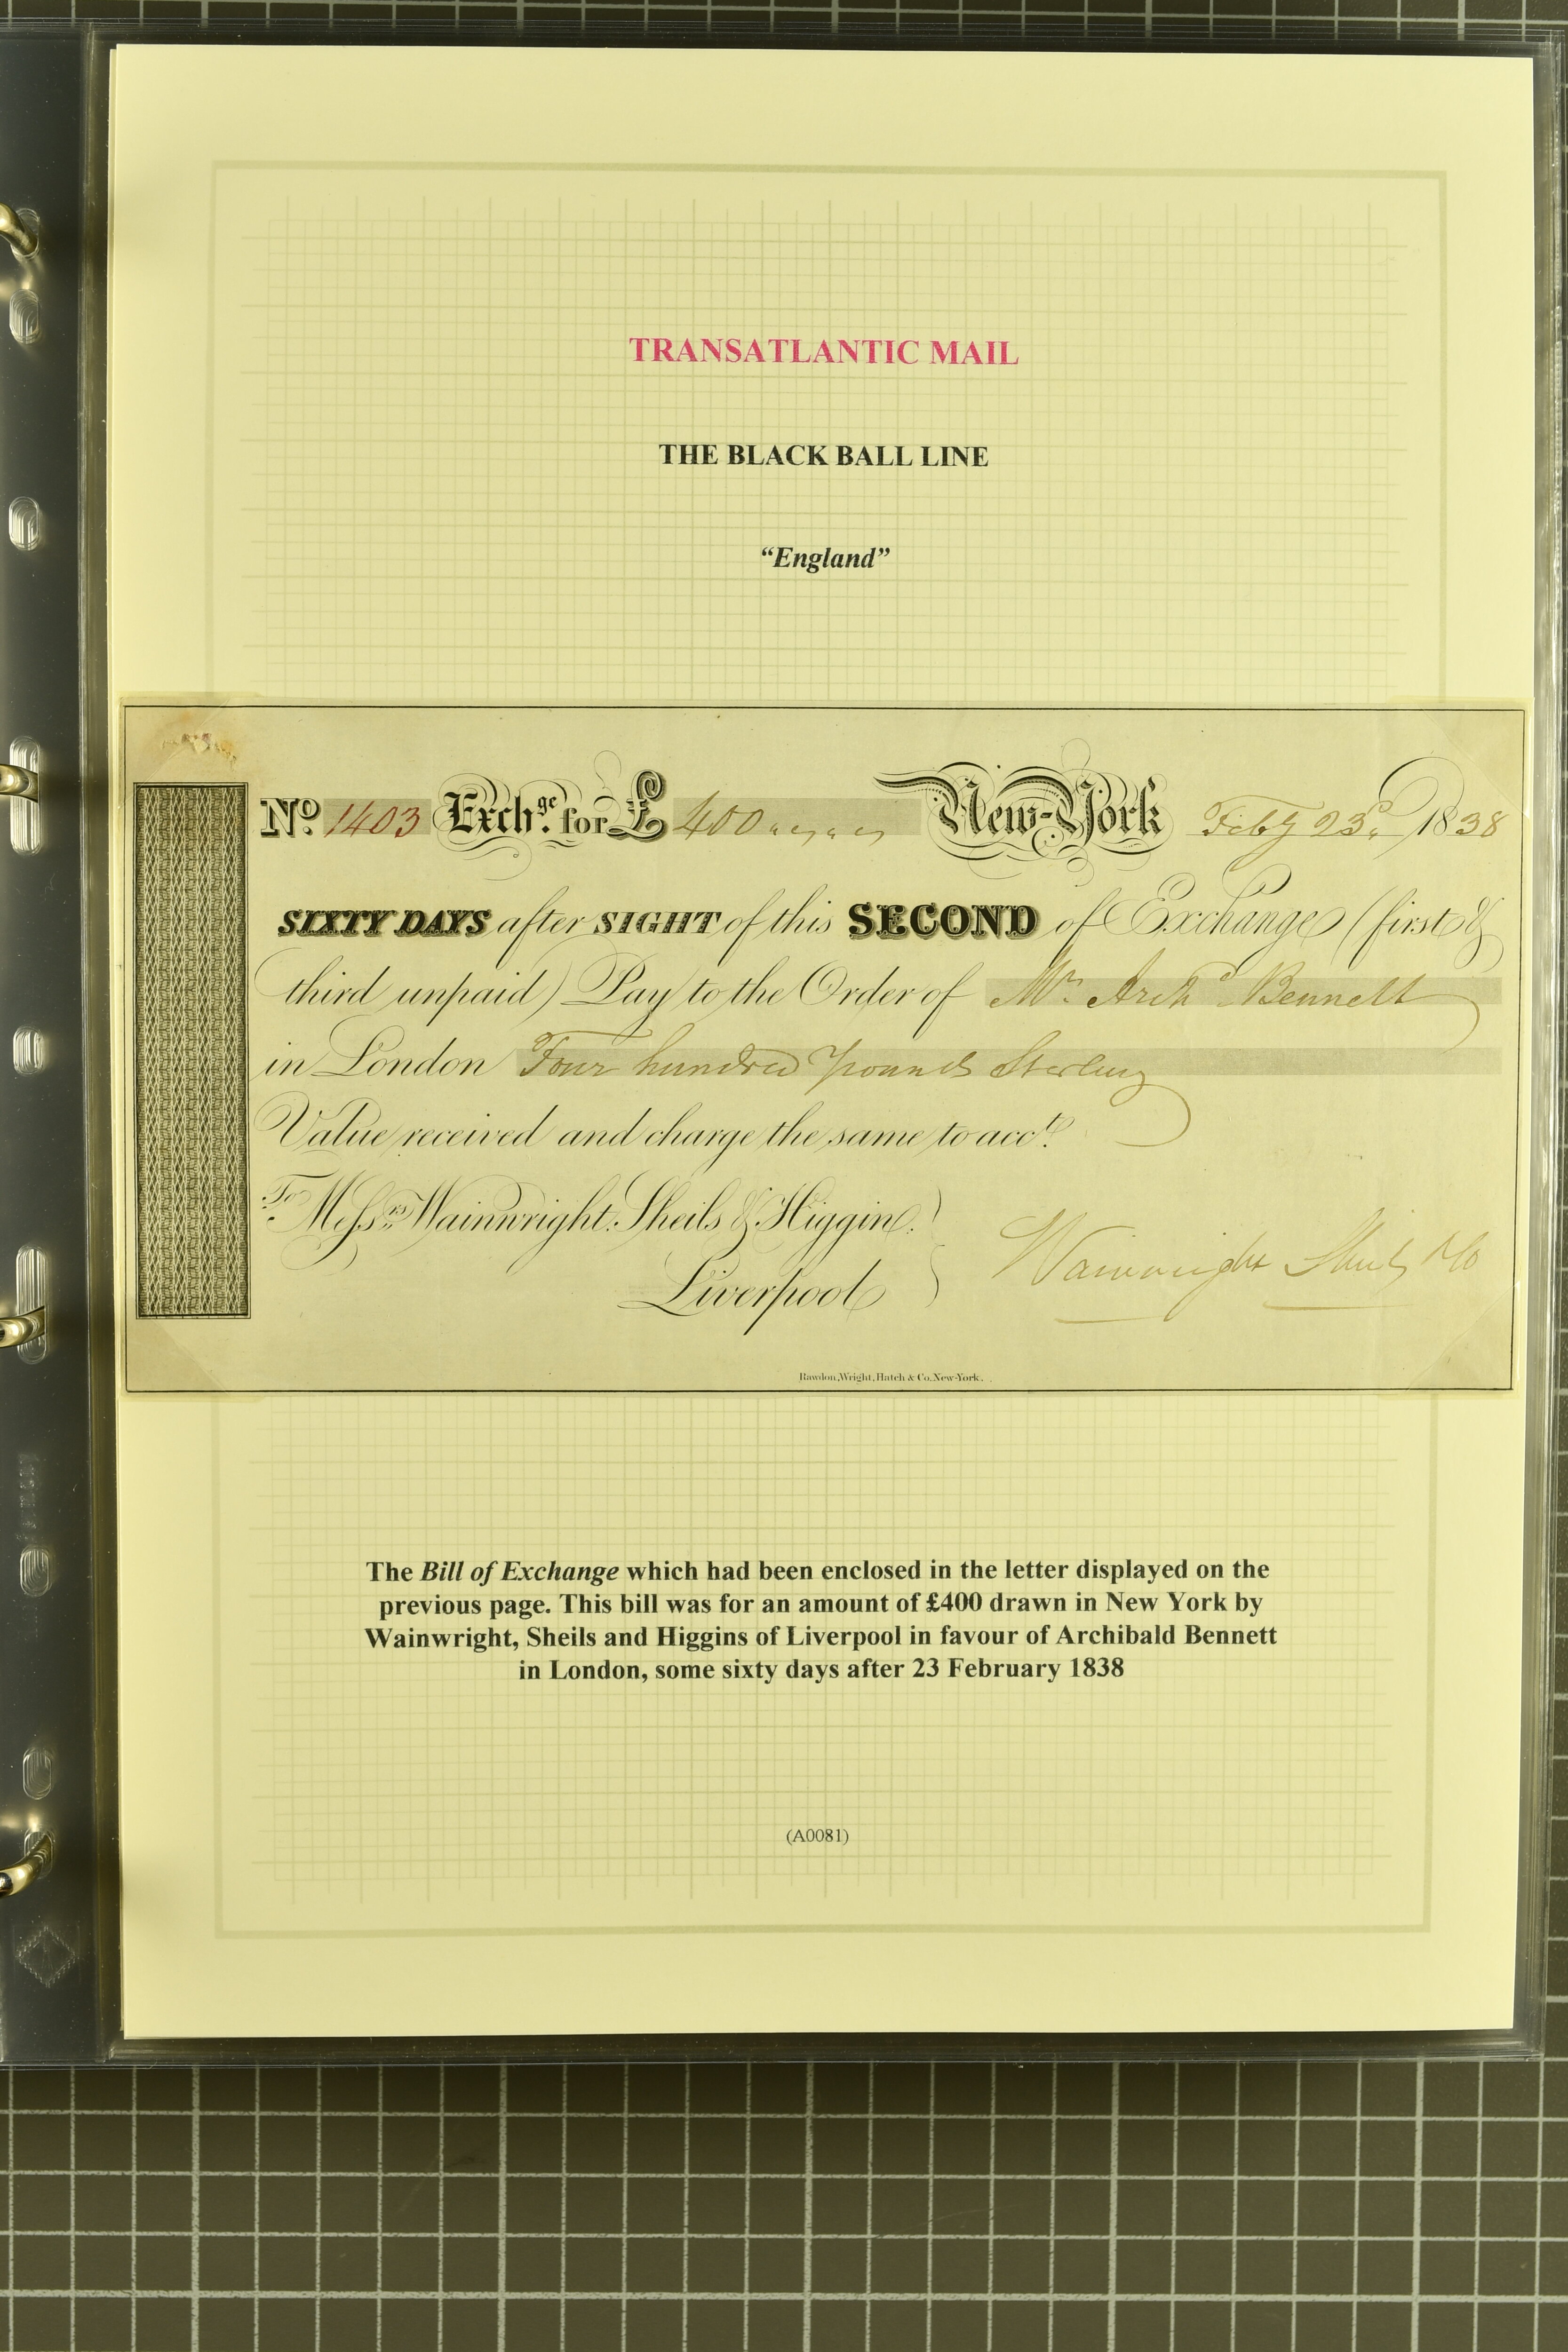 TRANSATLANTIC MAIL
THE BLACK BALL LINE
“England”
No. 1403 Exchge. for £ 400 New-York Feby 23d. 1838
SIXTY DAYS after SIGHT of this SECOND of Exchange (first &
third unpaid) Pay to the Order of Mr. Archd Bennett
in London Four hundred pounds Sterling
Value received and charge the same to acct.
To Messrs. Wainwright, Sheils & Higgin.
Liverpool
Wainwright Sheils & Co
Rawdon, Wright, Hatch & Co. New-York.
The Bill of Exchange which had been enclosed in the letter displayed on the
previous page. This bill was for an amount of £400 drawn in New York by
Wainwright, Sheils and Higgins of Liverpool in favour of Archibald Bennett
in London, some sixty days after 23 February 1838
(A0081)